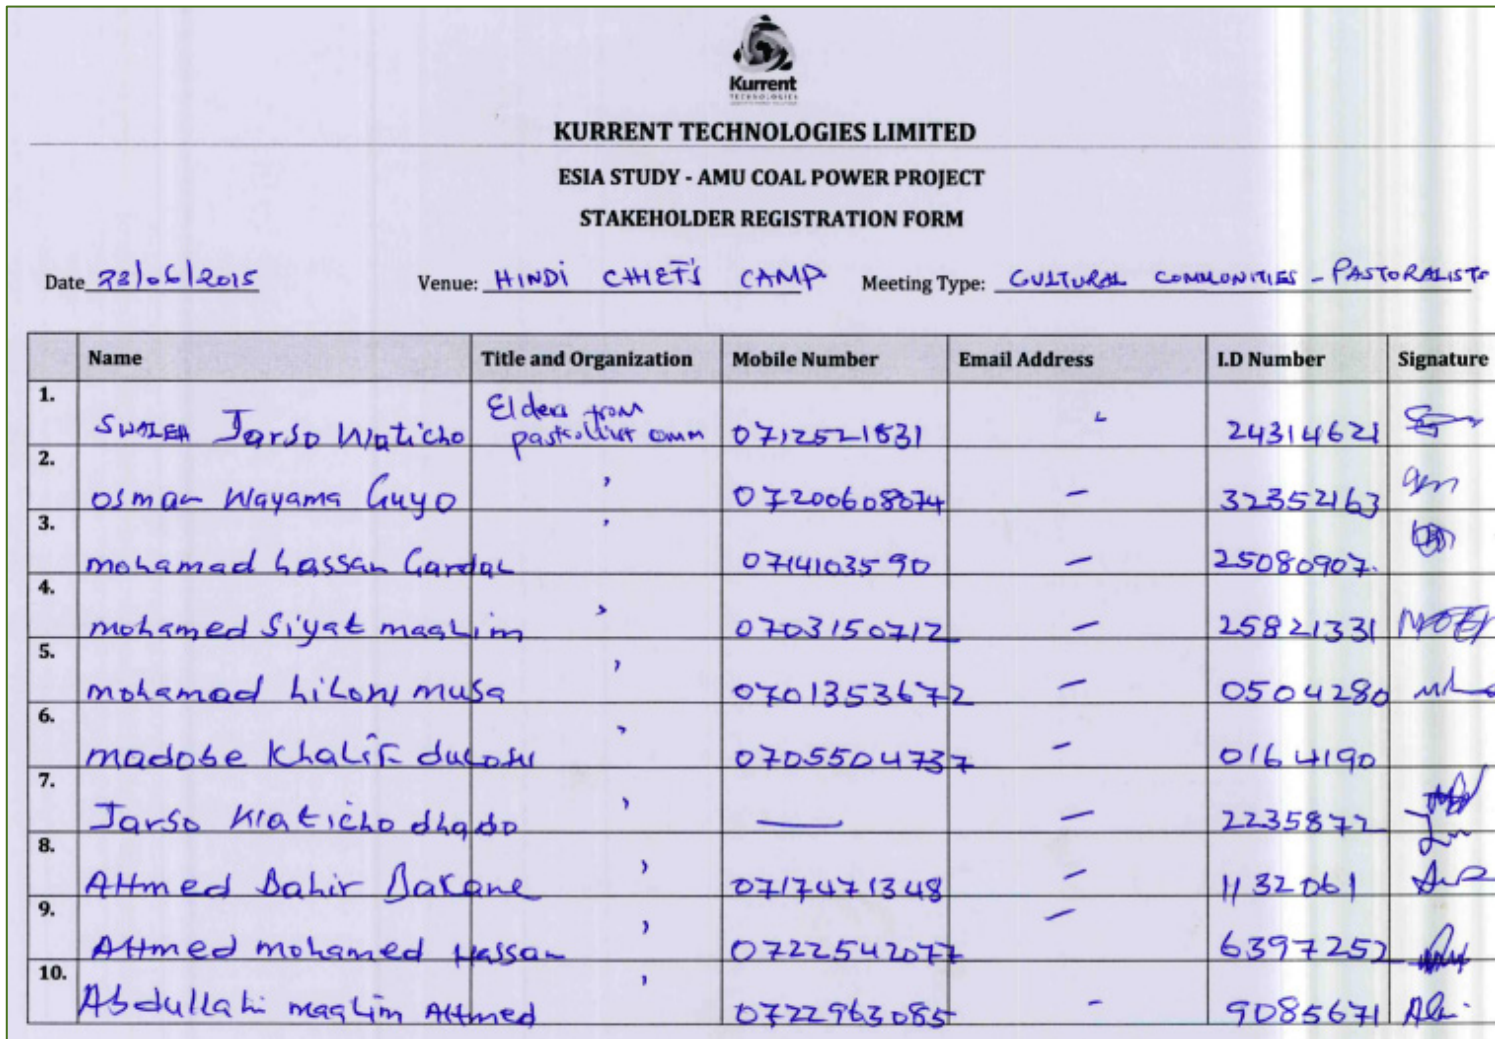 Kurrent
TECHNOLOGIES
KURRENT TECHNOLOGIES LIMITED
ESIA STUDY - AMU COAL POWER PROJECT
STAKEHOLDER REGISTRATION FORM
Date 23/06/2015 Venue: HINDI CHIEF'S CAMP Meeting Type: CULTURAL COMMUNITIES - PASTORALISTS
Name Title and Organization Mobile Number Email Address I.D Number Signature
1. SWALEH Jarso Waticho Elders from pastoralist comm 0712521831 24314621
2. osman Wayama Guyo " 07200608074 – 32352163
3. mohamad hassan Gardal " 0714103590 – 25080907.
4. mohamed Siyat maalim " 0703150712 – 25821331
5. mohamad hiLow musa " 0701353672 – 0504280
6. madobe KhaLiF duLow " 0705504737 – 0164190
7. Jarso Waticho dhado " — – 2235872
8. AHmed Dahir Dakane " 0717471348 – 1132061
9. AHmed mohamed Hassan " 0722542077 – 6397252
10. Abdullahi maalim AHmed " 0722963085 – 9085671